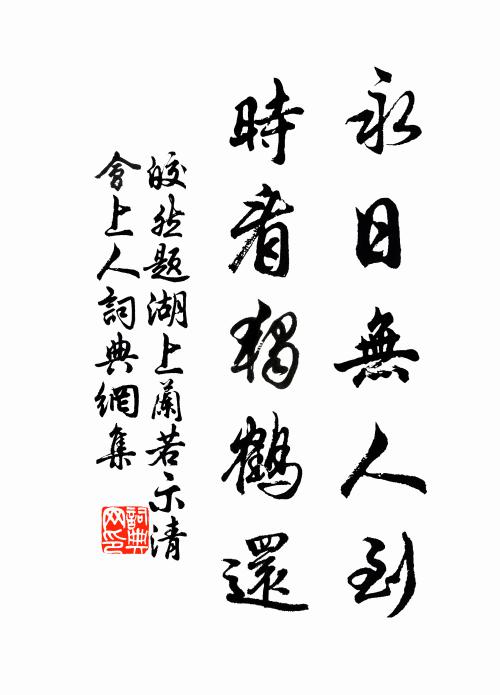 永日無人到
時看獨鶴還
皎然題湖上蘭若示清
會上人詞典網集
詞典网印